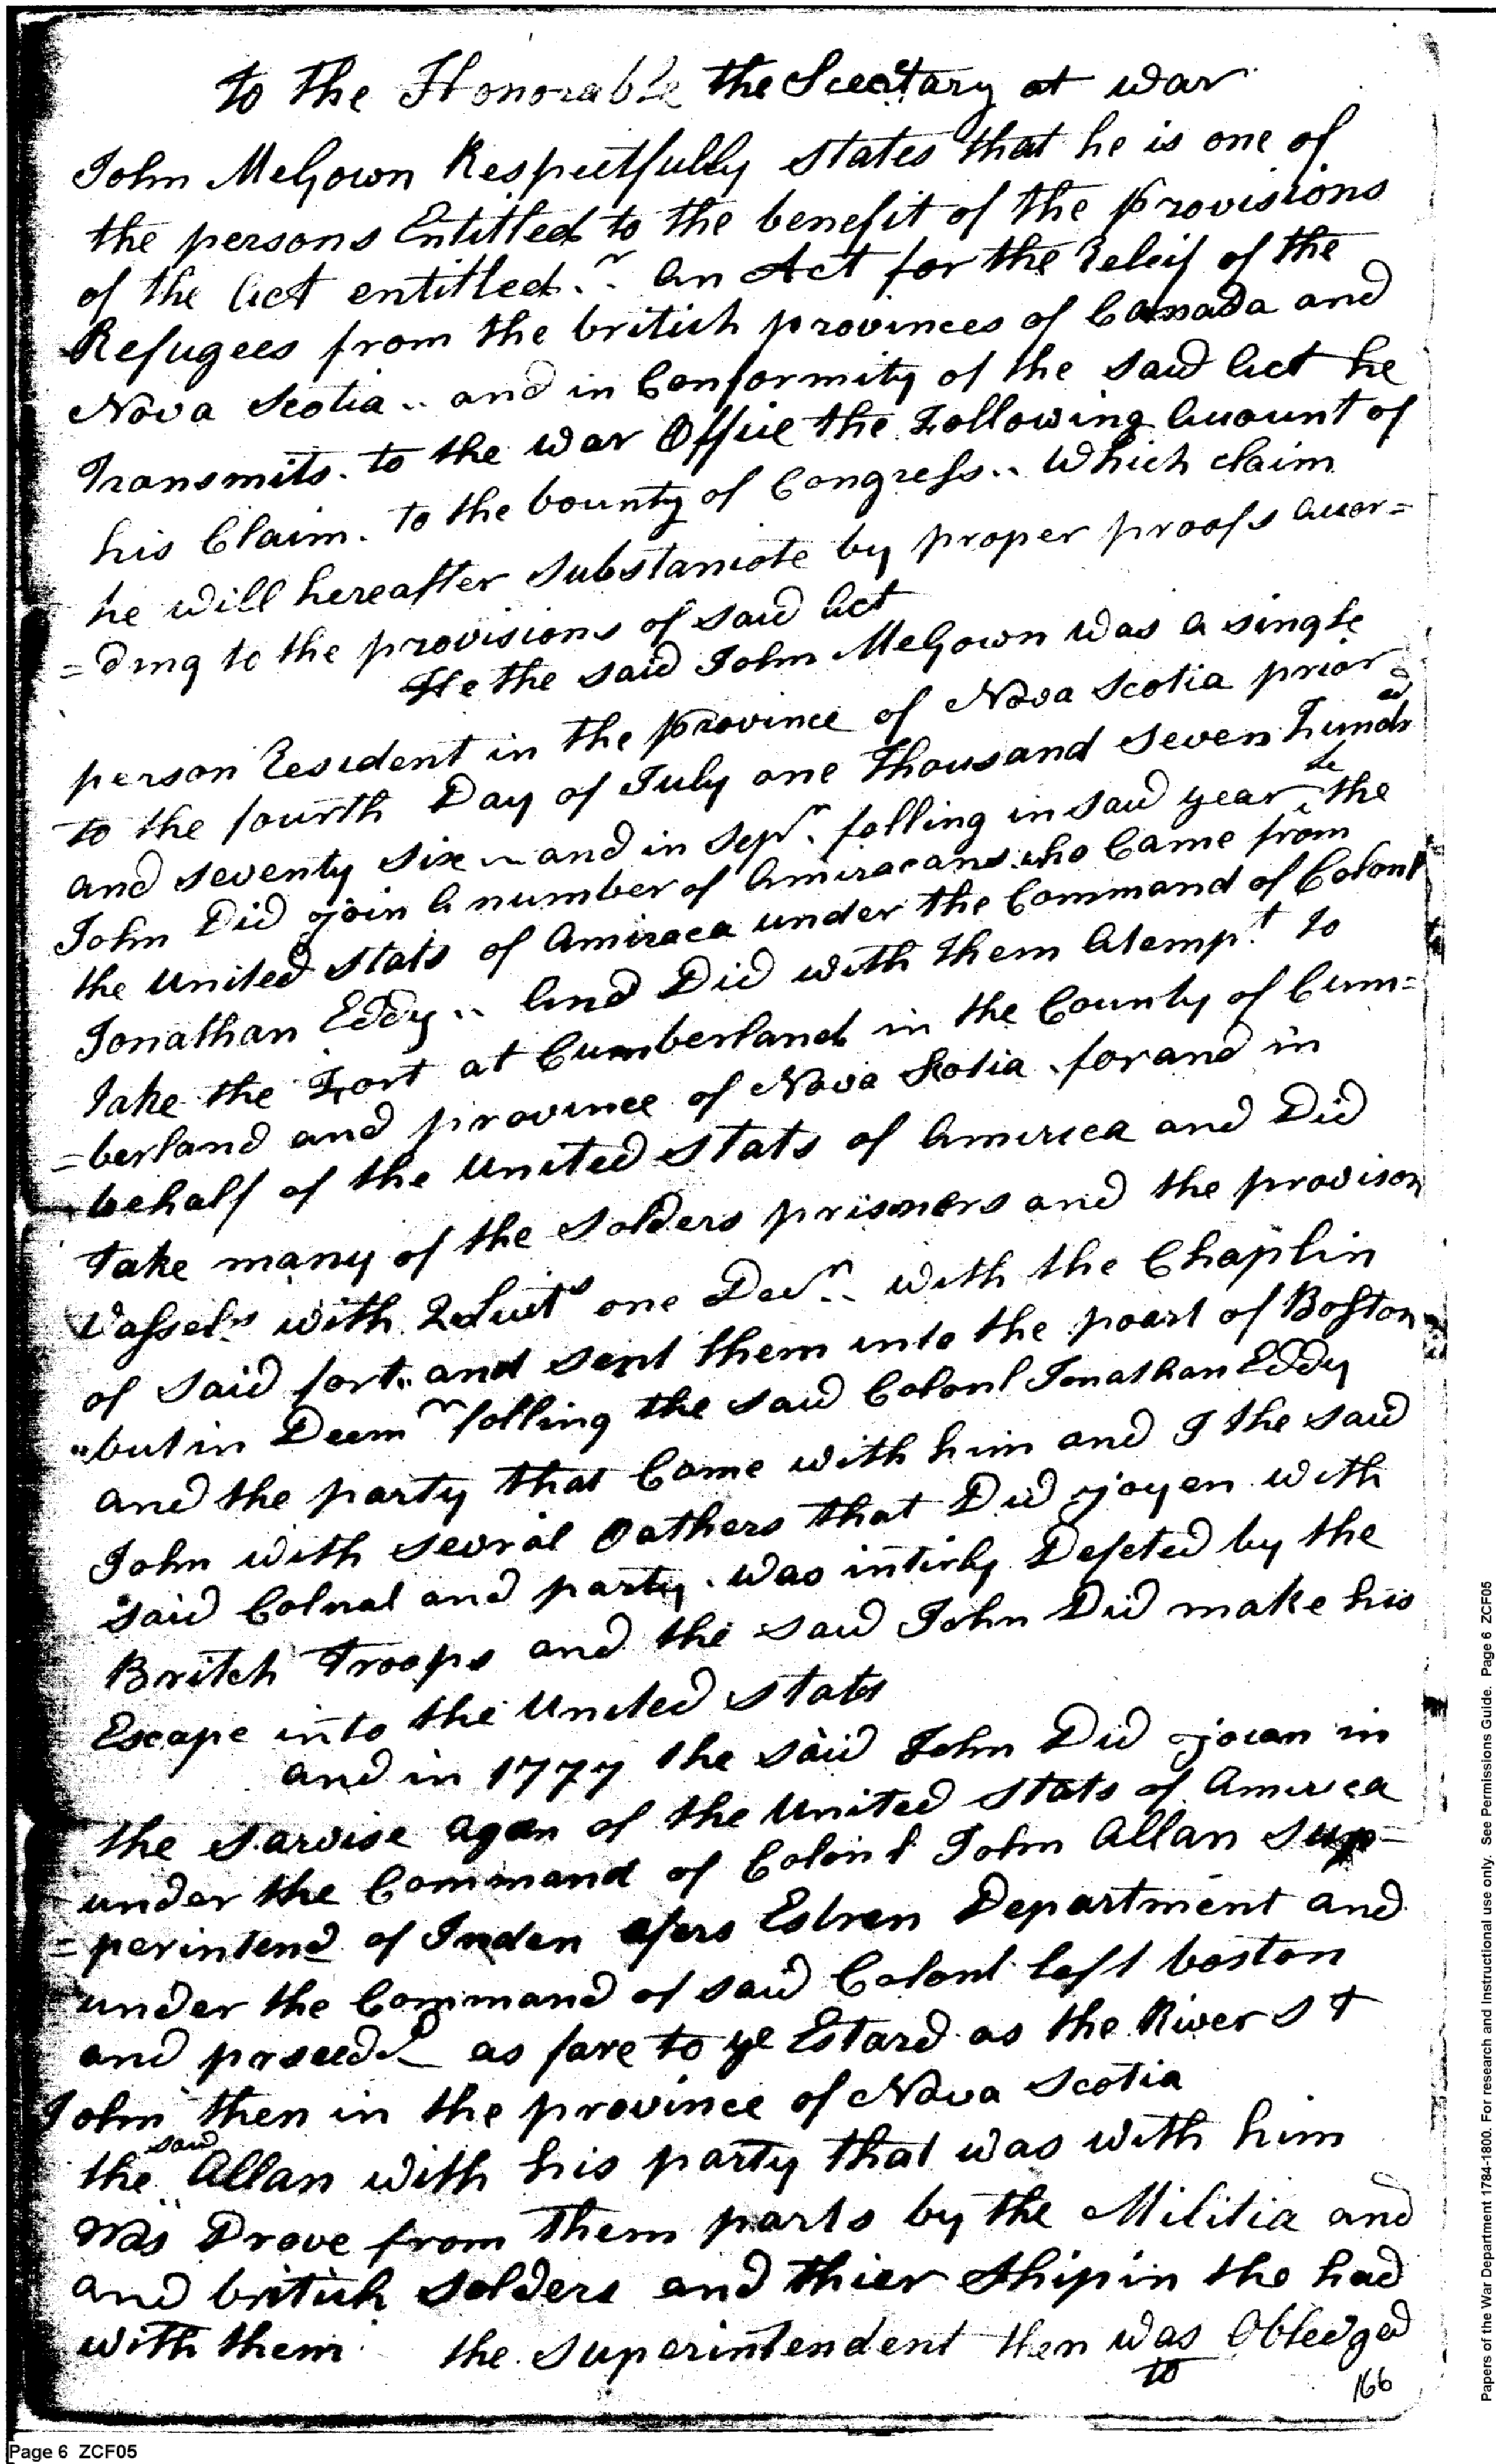 to the Honorable the Secretary at war
John McGown Respectfully states that he is one of
the persons Entitled to the benefit of the provisions
of the Act entitled.. An Act for the Releif of the
Refugees from the british provinces of Canada and
Nova Scotia .. and in Conformity of the said Act he
Transmits. to the war Office the Following Account of
his Claim. to the bounty of Congress.. Which claim
he will hereafter substantiate by proper proofs accor=
=ding to the provisions of said Act
He the said John McGown was a single
person Resident in the province of Nova Scotia prior
to the fourth Day of July one Thousand seven hundred
and seventy six ~ and in Sepr. folling in said year the
John Did join a number of Amiracans who Came from
the united stats of Amiraca under the Command of Colonl
Jonathan Eddy .. And Did with them Atempt to
Take the Fort at Cumberland in the County of Cum=
=berland and province of Nova Scotia . for and in
behalf of the united stats of America and Did
take many of the Solders prisoners and the provison
Vassels with 2 Luits one Dod.. with the Chaplin
of said fort.. and sent them into the poart of Boston
"but in Decmr folling the said Colonl Jonathan Eddy
and the party that Came with him and I the said
John with sevral oathers that Did joyen with
said Colnal and party . was intirly Defeted by the
Britch Troops and the said John Did make his
Escape into the United stats
and in 1777 the said John Did joian in
the sarvise agan of the United Stats of America
under the Command of Colonl John Allan Sup=
=perintend of Inden afers Estren Department and
under the Command of said Colonl left boston
and prseedd as fare to ye Estard as the River St
John then in the province of Nova Scotia
the said Allan with his party that was with him
was Drove from them parts by the Militia and
and british Solders and thier Shipin the had
with them the Superintendent then was Obledged
to
166
Page 6 ZCF05
Papers of the War Department 1784-1800. For research and instructional use only. See Permissions Guide. Page 6 ZCF05